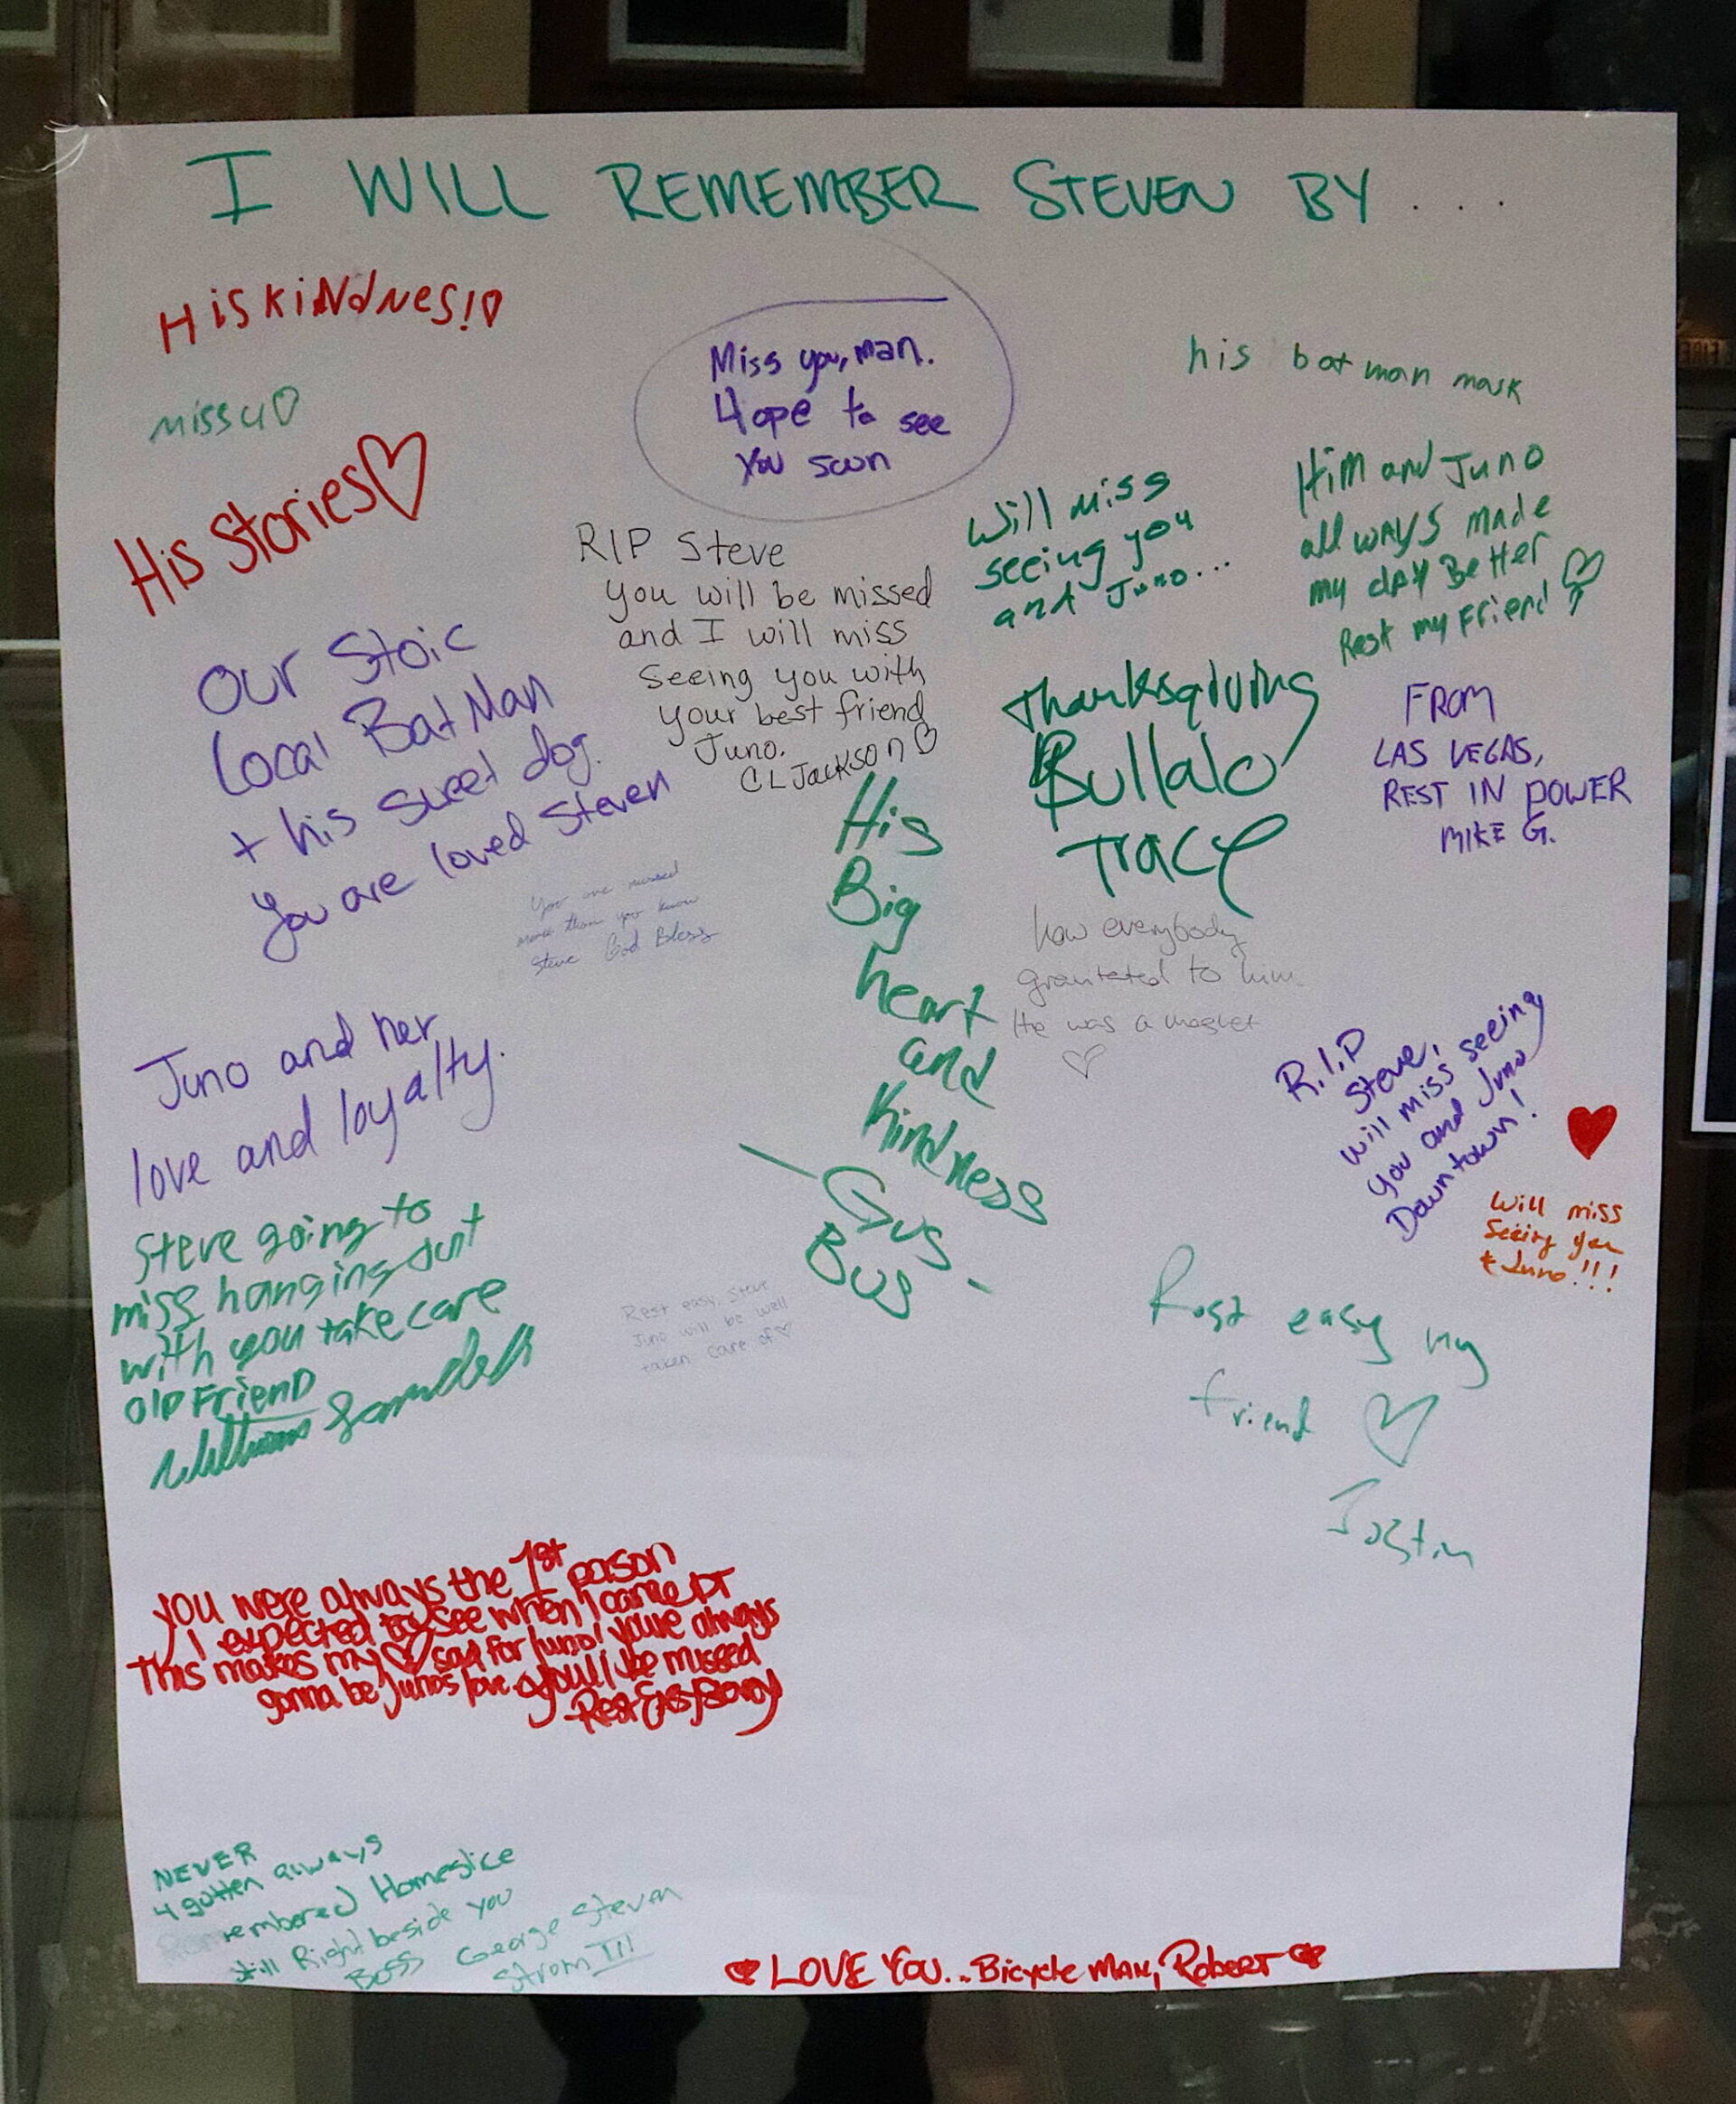 I WILL REMEMBER STEVEN BY . . .
HiS KiNdNes!♡
miss u♡
His Stories♡
Miss you, man.
Hope to see
you soon
his batman mask
RIP Steve
you will be missed
and I will miss
Seeing you with
your best friend
Juno.
CL Jackson♡
Will miss
seeing you
and Juno...
Him and Juno
allways made
my day Better
Rest my Friend ♡
Our Stoic
Local BatMan
+ his sweet dog.
You are loved Steven
Thanksgiving
Buffalo
Trace
FROM
LAS VEGAS,
REST IN POWER
MIKE G.
You are missed
more than you know
Steve God Bless
His
Big
heart
and
Kindness
- Gus -
Bus
how everybody
to him
He was a magnet
♡
Juno and her
love and loyalty.
R.I.P
Steve,
will miss seeing
you and Juno
Downtown!
♥
Will miss
Seeing you
+ Juno!!!
Steve going to
miss hanging out
with you take care
Old FrienD
William
Rest easy, Steve
Juno will be well
taken care of♡
Rest easy my
friend ♡
Justin
you were always the 1st person
I expected to see when I came DT
This makes my ♡ sad for Juno! you're always
gonna be Juno's love & you'll be missed
Rest Easy
NEVER
4gotten always
Remembered Homeslice
still Right beside you
Boss George Steven
Strom III
♥ LOVE YOU... Bicycle Man, Robert ♥